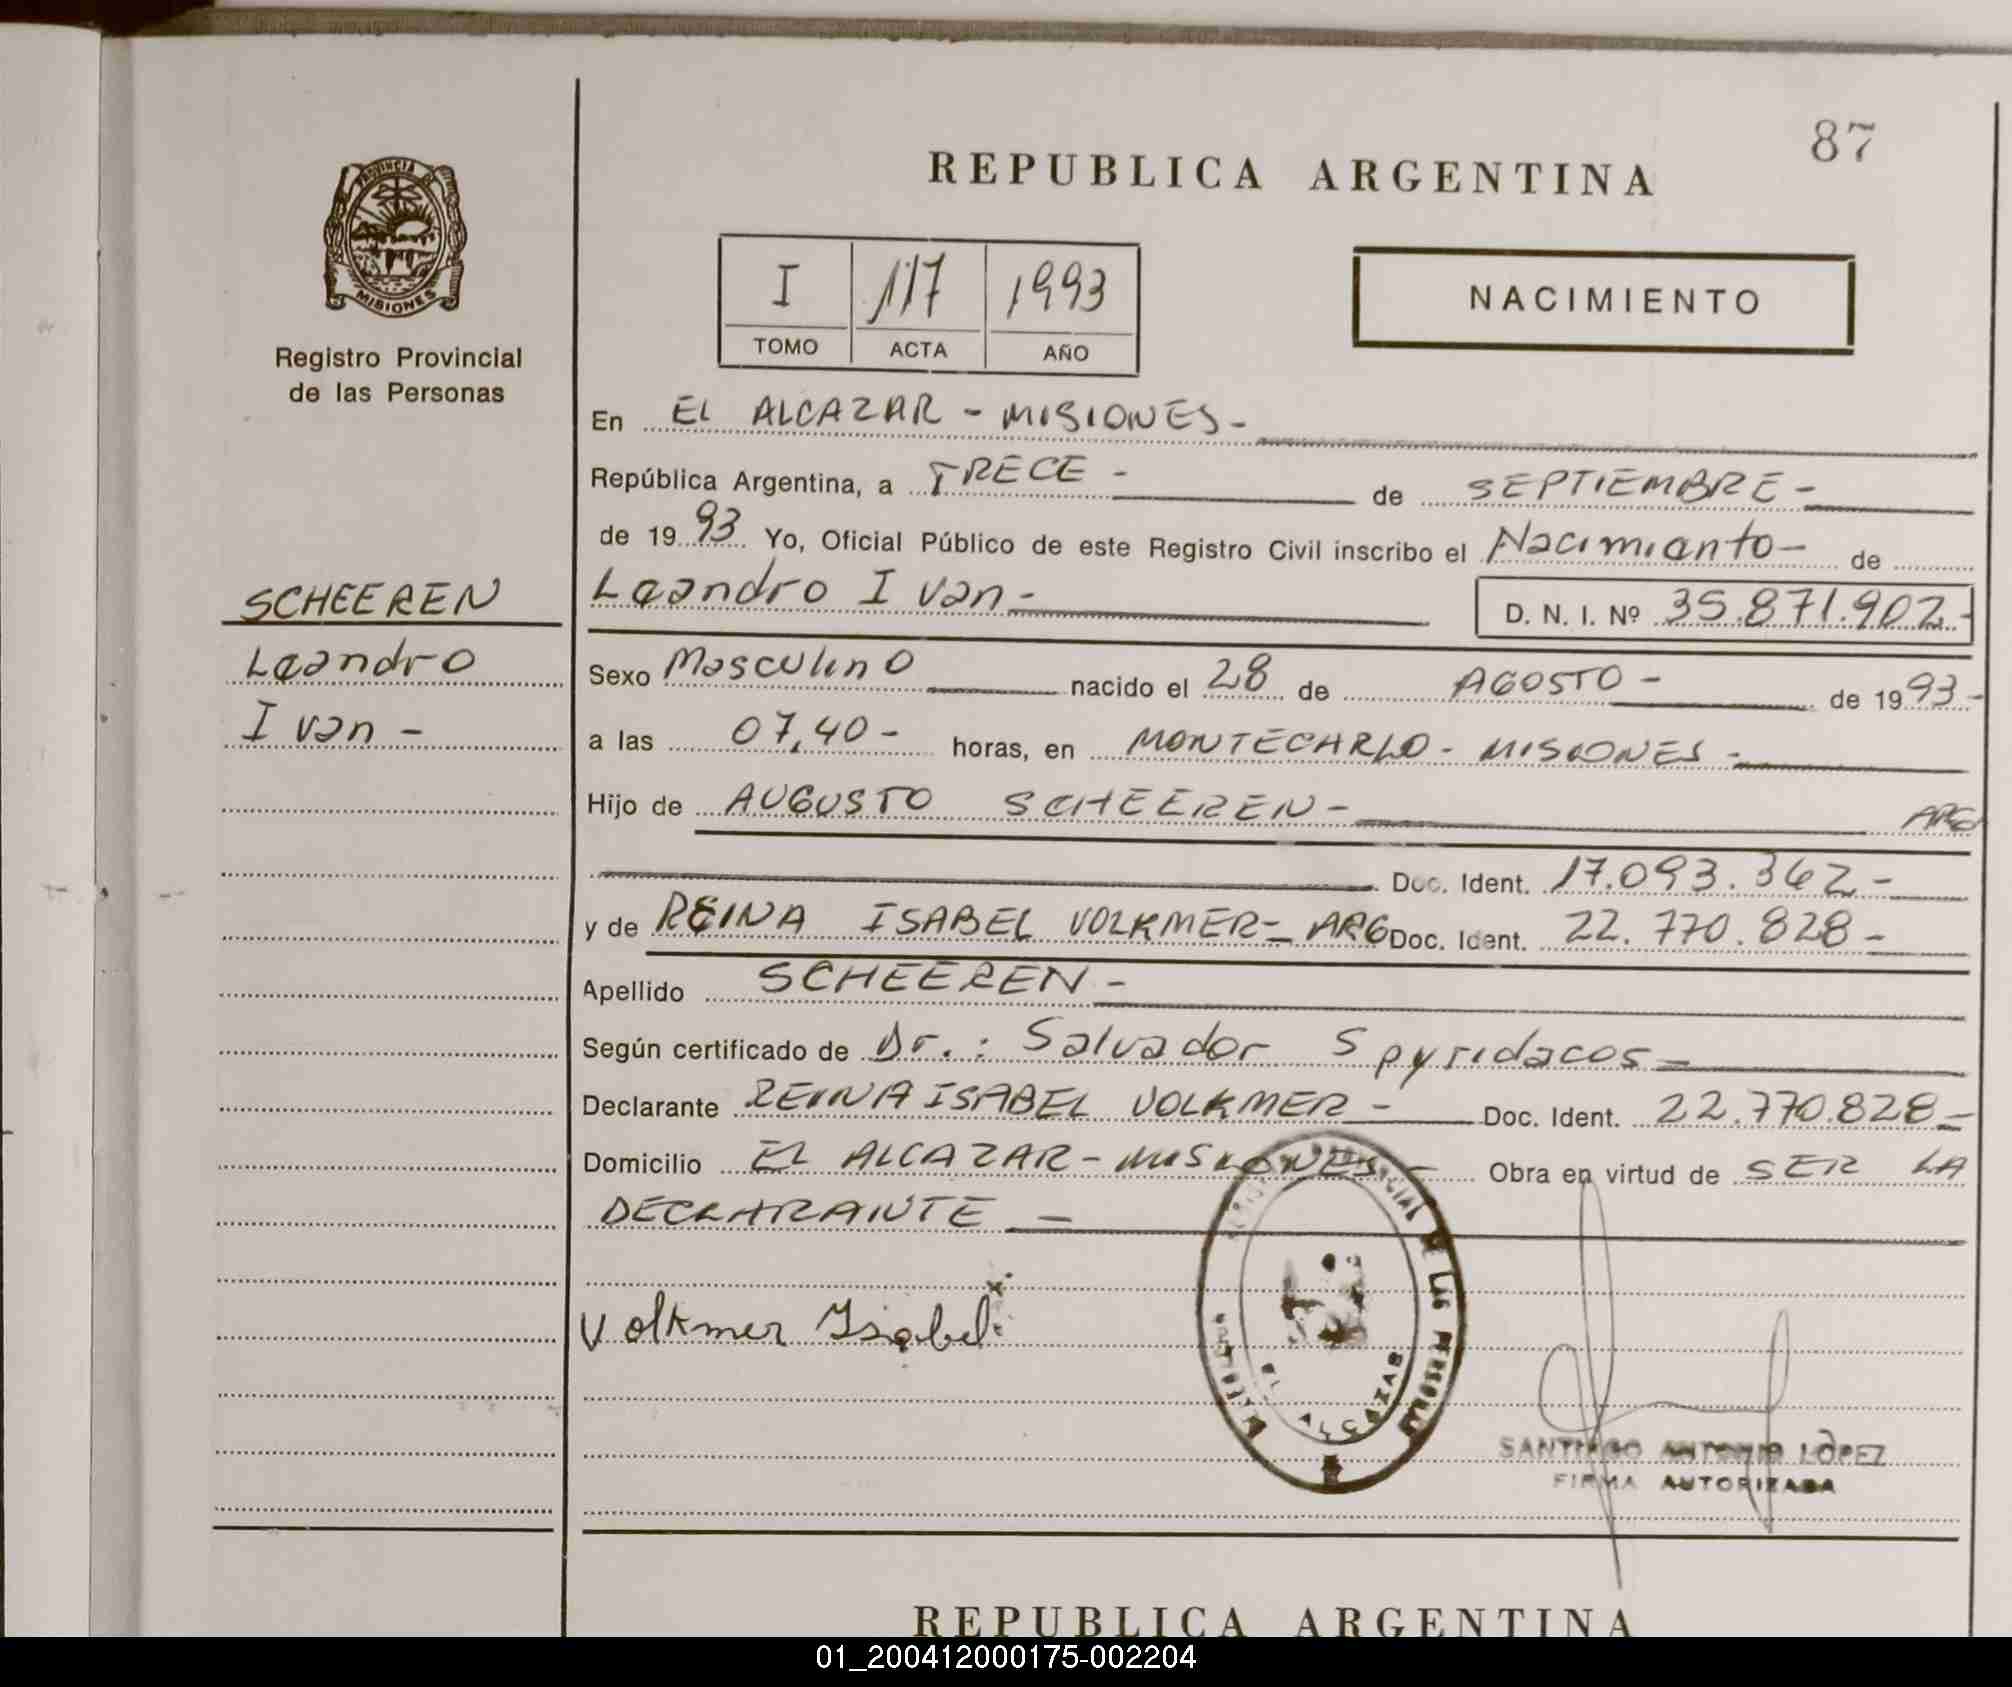 87
REPUBLICA ARGENTINA
PROVINCIA DE
MISIONES
Registro Provincial
de las Personas
I 117 1993
TOMO ACTA AÑO
NACIMIENTO
En EL ALCAZAR - MISIONES -
República Argentina, a TRECE - de SEPTIEMBRE -
de 1993 Yo, Oficial Público de este Registro Civil inscribo el Nacimianto - de
Leandro Ivan - D. N. I. Nº 35.871.902-
SCHEEREN
Leandro
Ivan -
Sexo Masculino nacido el 28 de AGOSTO - de 1993-
a las 07,40 - horas, en MONTECARLO - MISIONES -
Hijo de AUGUSTO SCHEEREN - ARG
Doc. Ident. 17.093.362-
y de REINA ISABEL VOLKMER - ARG Doc. Ident. 22.770.828-
Apellido SCHEEREN -
Según certificado de Dr.: Salvador Spyridacos -
Declarante REINA ISABEL VOLKMER - Doc. Ident. 22.770.828-
Domicilio EL ALCAZAR - MISIONES - Obra en virtud de SER LA
DECLARANTE -
Volkmer Isabel
SANTIAGO ANTONIO LÓPEZ
FIRMA AUTORIZADA
REPUBLICA ARGENTINA
01_200412000175-002204